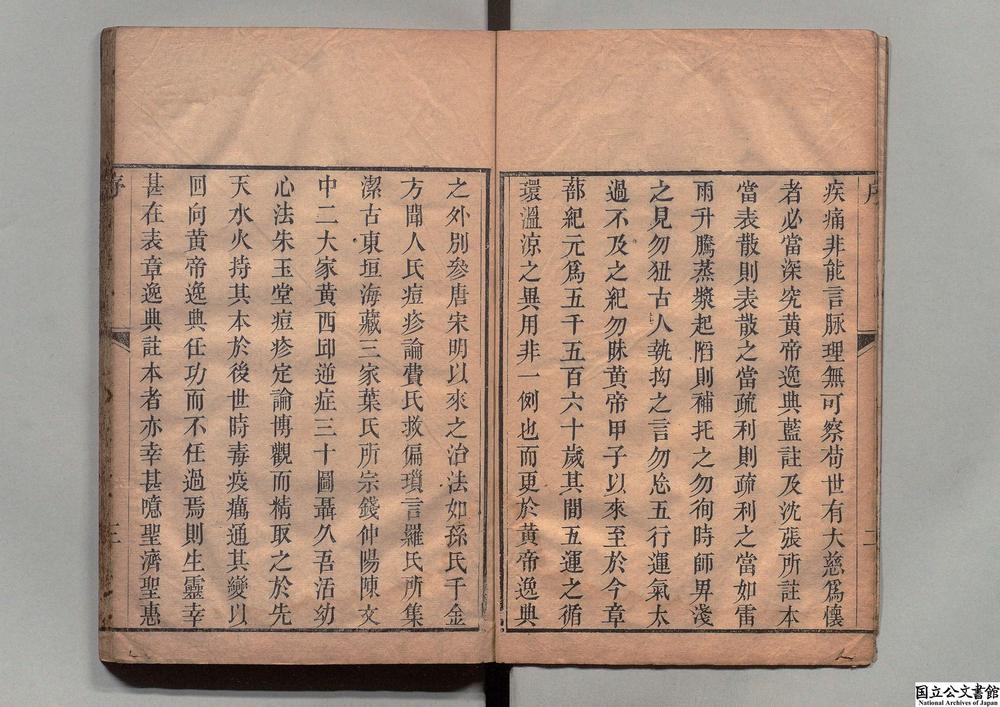 序
二
疾痛非能言脉理無可察苟世有大慈爲懷
者必當深究黄帝逸典藍註及沈張所註本
當表散則表散之當疏利則疏利之當如雷
雨升騰蒸漿起陷則補托之勿徇時師畀淺
之見勿狃古人執拘之言勿怂五行運氣太
過不及之紀勿眛黄帝甲子以來至於今章
蔀紀元爲五千五百六十歲其間五運之循
環溫涼之異用非一例也而更於黄帝逸典
之外別參唐宋明以來之治法如孫氏千金
方聞人氏痘疹論費氏救偏瑣言羅氏所集
潔古東垣海藏三家葉氏所宗錢仲陽陳文
中二大家黄西邱逆症三十圖聶久吾活幼
心法朱玉堂痘疹定論博觀而精取之於先
天水火持其本於後世時毒疫癘通其變以
回向黄帝逸典任功而不任過焉則生靈幸
甚在表章逸典註本者亦幸甚噫聖濟聖惠
序
三
国立公文書館
National Archives of Japan